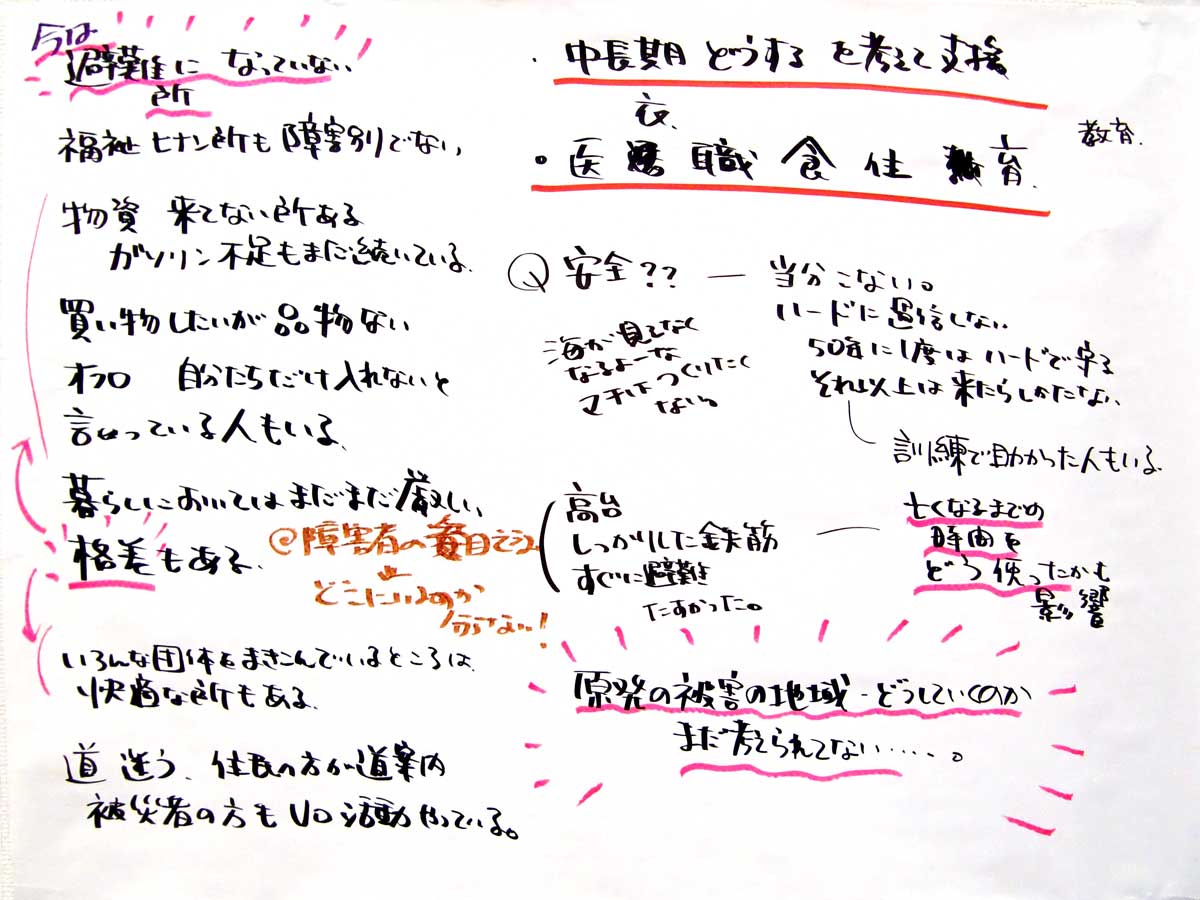 今は
避難になっていない
所
福祉ヒナン所も障害別でない
物資 来てない所ある
ガソリン不足もまだ続いている。
買い物したいが品物ない
オフロ 自分たちだけ入れないと
言っている人もいる。
暮らしにおいてはまだまだ厳しい。
格差もある。
@障害者の
どこにいるのか
分らない!
いろんな団体をまきこんでいるところは、
快適な所もある。
道 迷う、住民の方が道案内
被災者の方もVo活動やっている。
・中長期 どうするを考えて支援
衣
・医 職 食 住 育
教育.
Q 安全?? — 当分こない。
ハードに過信しない
50年に1度はハードで守る
それ以上は来たらしかたない。
訓練で助かった人もいる
海が見えなく
なるよーな
マチは つくりたく
ない。
高台
しっかりした鉄筋
すぐに避難
たすかった。
亡くなるまでの
時間を
どう使ったかも
影響
原発の被害の地域-どうしていくのか
まだ考えられてない・・・・・。